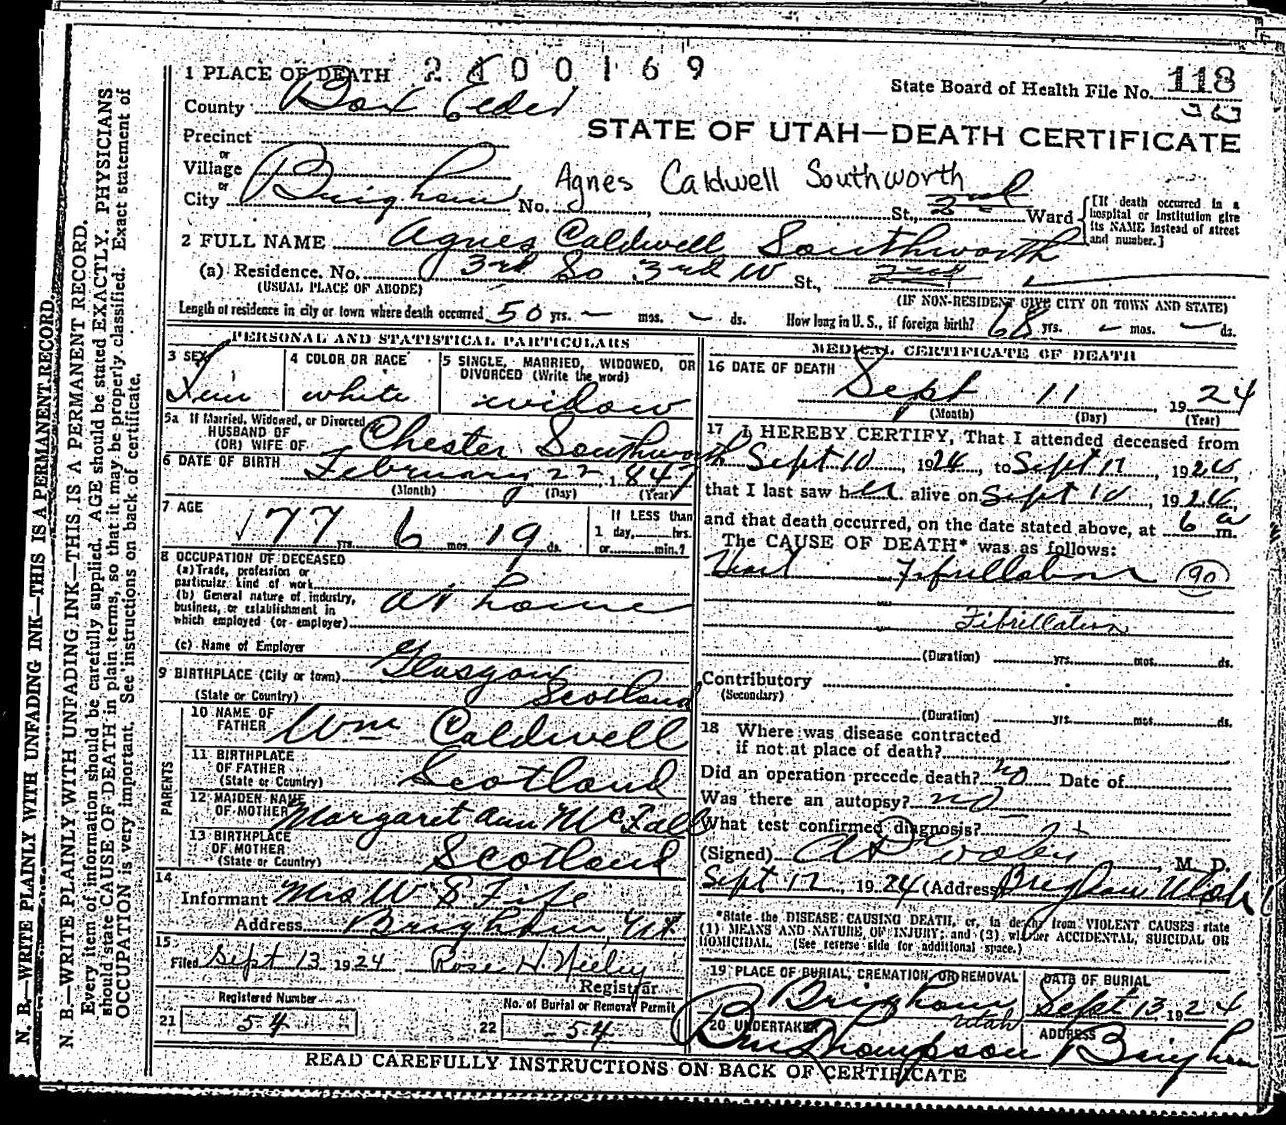 N. B.—WRITE PLAINLY WITH UNFADING INK—THIS IS A PERMANENT RECORD.
N. B.—WRITE PLAINLY WITH UNFADING INK—THIS IS A PERMANENT RECORD.
Every item of information should be carefully supplied. AGE should be stated EXACTLY. PHYSICIANS
should state CAUSE OF DEATH in plain terms, so that it may be properly classified. Exact statement of
OCCUPATION is very important. See instructions on back of certificate.
1 PLACE OF DEATH 2100169
State Board of Health File No. 118
County Box Elder
STATE OF UTAH—DEATH CERTIFICATE
Precinct
or
Village
or
City Brigham No. St., 2nd Ward
Agnes Caldwell Southworth
[If death occurred in a
hospital or institution give
its NAME instead of street
and number.]
2 FULL NAME Agnes Caldwell Southworth
(a) Residence. No. 3rd So 3rd W St.,
(USUAL PLACE OF ABODE) (IF NON-RESIDENT GIVE CITY OR TOWN AND STATE)
Length of residence in city or town where death occurred 50 yrs. — mos. — ds. How long in U. S., if foreign birth? 68 yrs. — mos. — ds.
PERSONAL AND STATISTICAL PARTICULARS
3 SEX Fem
4 COLOR OR RACE white
5 SINGLE, MARRIED, WIDOWED, OR
DIVORCED (Write the word)
widow
5a If Married, Widowed, or Divorced
HUSBAND OF
(OR) WIFE OF Chester Southworth
6 DATE OF BIRTH February 22 1847
(Month) (Day) (Year)
7 AGE 77 yrs. 6 mos. 19 ds.
If LESS than
1 day, hrs.
or min.?
8 OCCUPATION OF DECEASED
(a) Trade, profession or
particular kind of work
(b) General nature of industry,
business, or establishment in
which employed (or employer)
at home
(c) Name of Employer
9 BIRTHPLACE (City or town) Glasgow
(State or Country) Scotland
PARENTS
10 NAME OF
FATHER Wm Caldwell
11 BIRTHPLACE
OF FATHER
(State or Country) Scotland
12 MAIDEN NAME
OF MOTHER Margaret Ann McFall
13 BIRTHPLACE
OF MOTHER
(State or Country) Scotland
14
Informant Mrs W S Fife
Address Brigham Ut
15
Filed Sept 13 1924 Rose H Neeley
Registrar
Registered Number
21 54
No. of Burial or Removal Permit
22 54
MEDICAL CERTIFICATE OF DEATH
16 DATE OF DEATH
Sept 11 1924
(Month) (Day) (Year)
17 I HEREBY CERTIFY, That I attended deceased from
Sept 10, 1924, to Sept 11, 1924,
that I last saw her alive on Sept 10, 1924,
and that death occurred, on the date stated above, at 6 a m.
The CAUSE OF DEATH* was as follows:
Heart Fibrillation 90
Fibrillation
(Duration) yrs. mos. ds.
Contributory
(Secondary)
(Duration) yrs. mos. ds.
18 Where was disease contracted
if not at place of death?
Did an operation precede death? no Date of
Was there an autopsy? no
What test confirmed diagnosis?
(Signed) M. D.
Sept 12, 1924 (Address) Brigham Utah
*State the DISEASE CAUSING DEATH, or, in deaths from VIOLENT CAUSES state
(1) MEANS AND NATURE OF INJURY; and (3) whether ACCIDENTAL, SUICIDAL OR
HOMICIDAL. (See reverse side for additional space.)
19 PLACE OF BURIAL, CREMATION, OR REMOVAL
Brigham
Utah
DATE OF BURIAL
Sept 13, 1924
20 UNDERTAKER
Thompson
ADDRESS
Brigham
READ CAREFULLY INSTRUCTIONS ON BACK OF CERTIFICATE